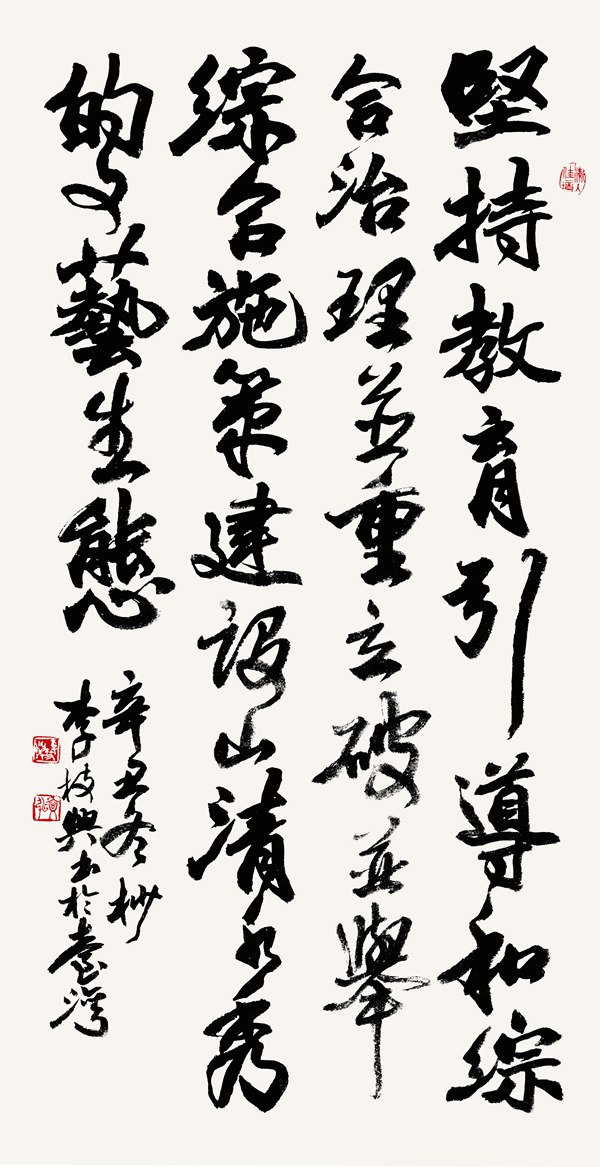 堅持教育引導和綜
合治理並重立破並舉
綜合施策建設山清水秀
的文藝生態
辛丑冬杪
李技興書於臺灣